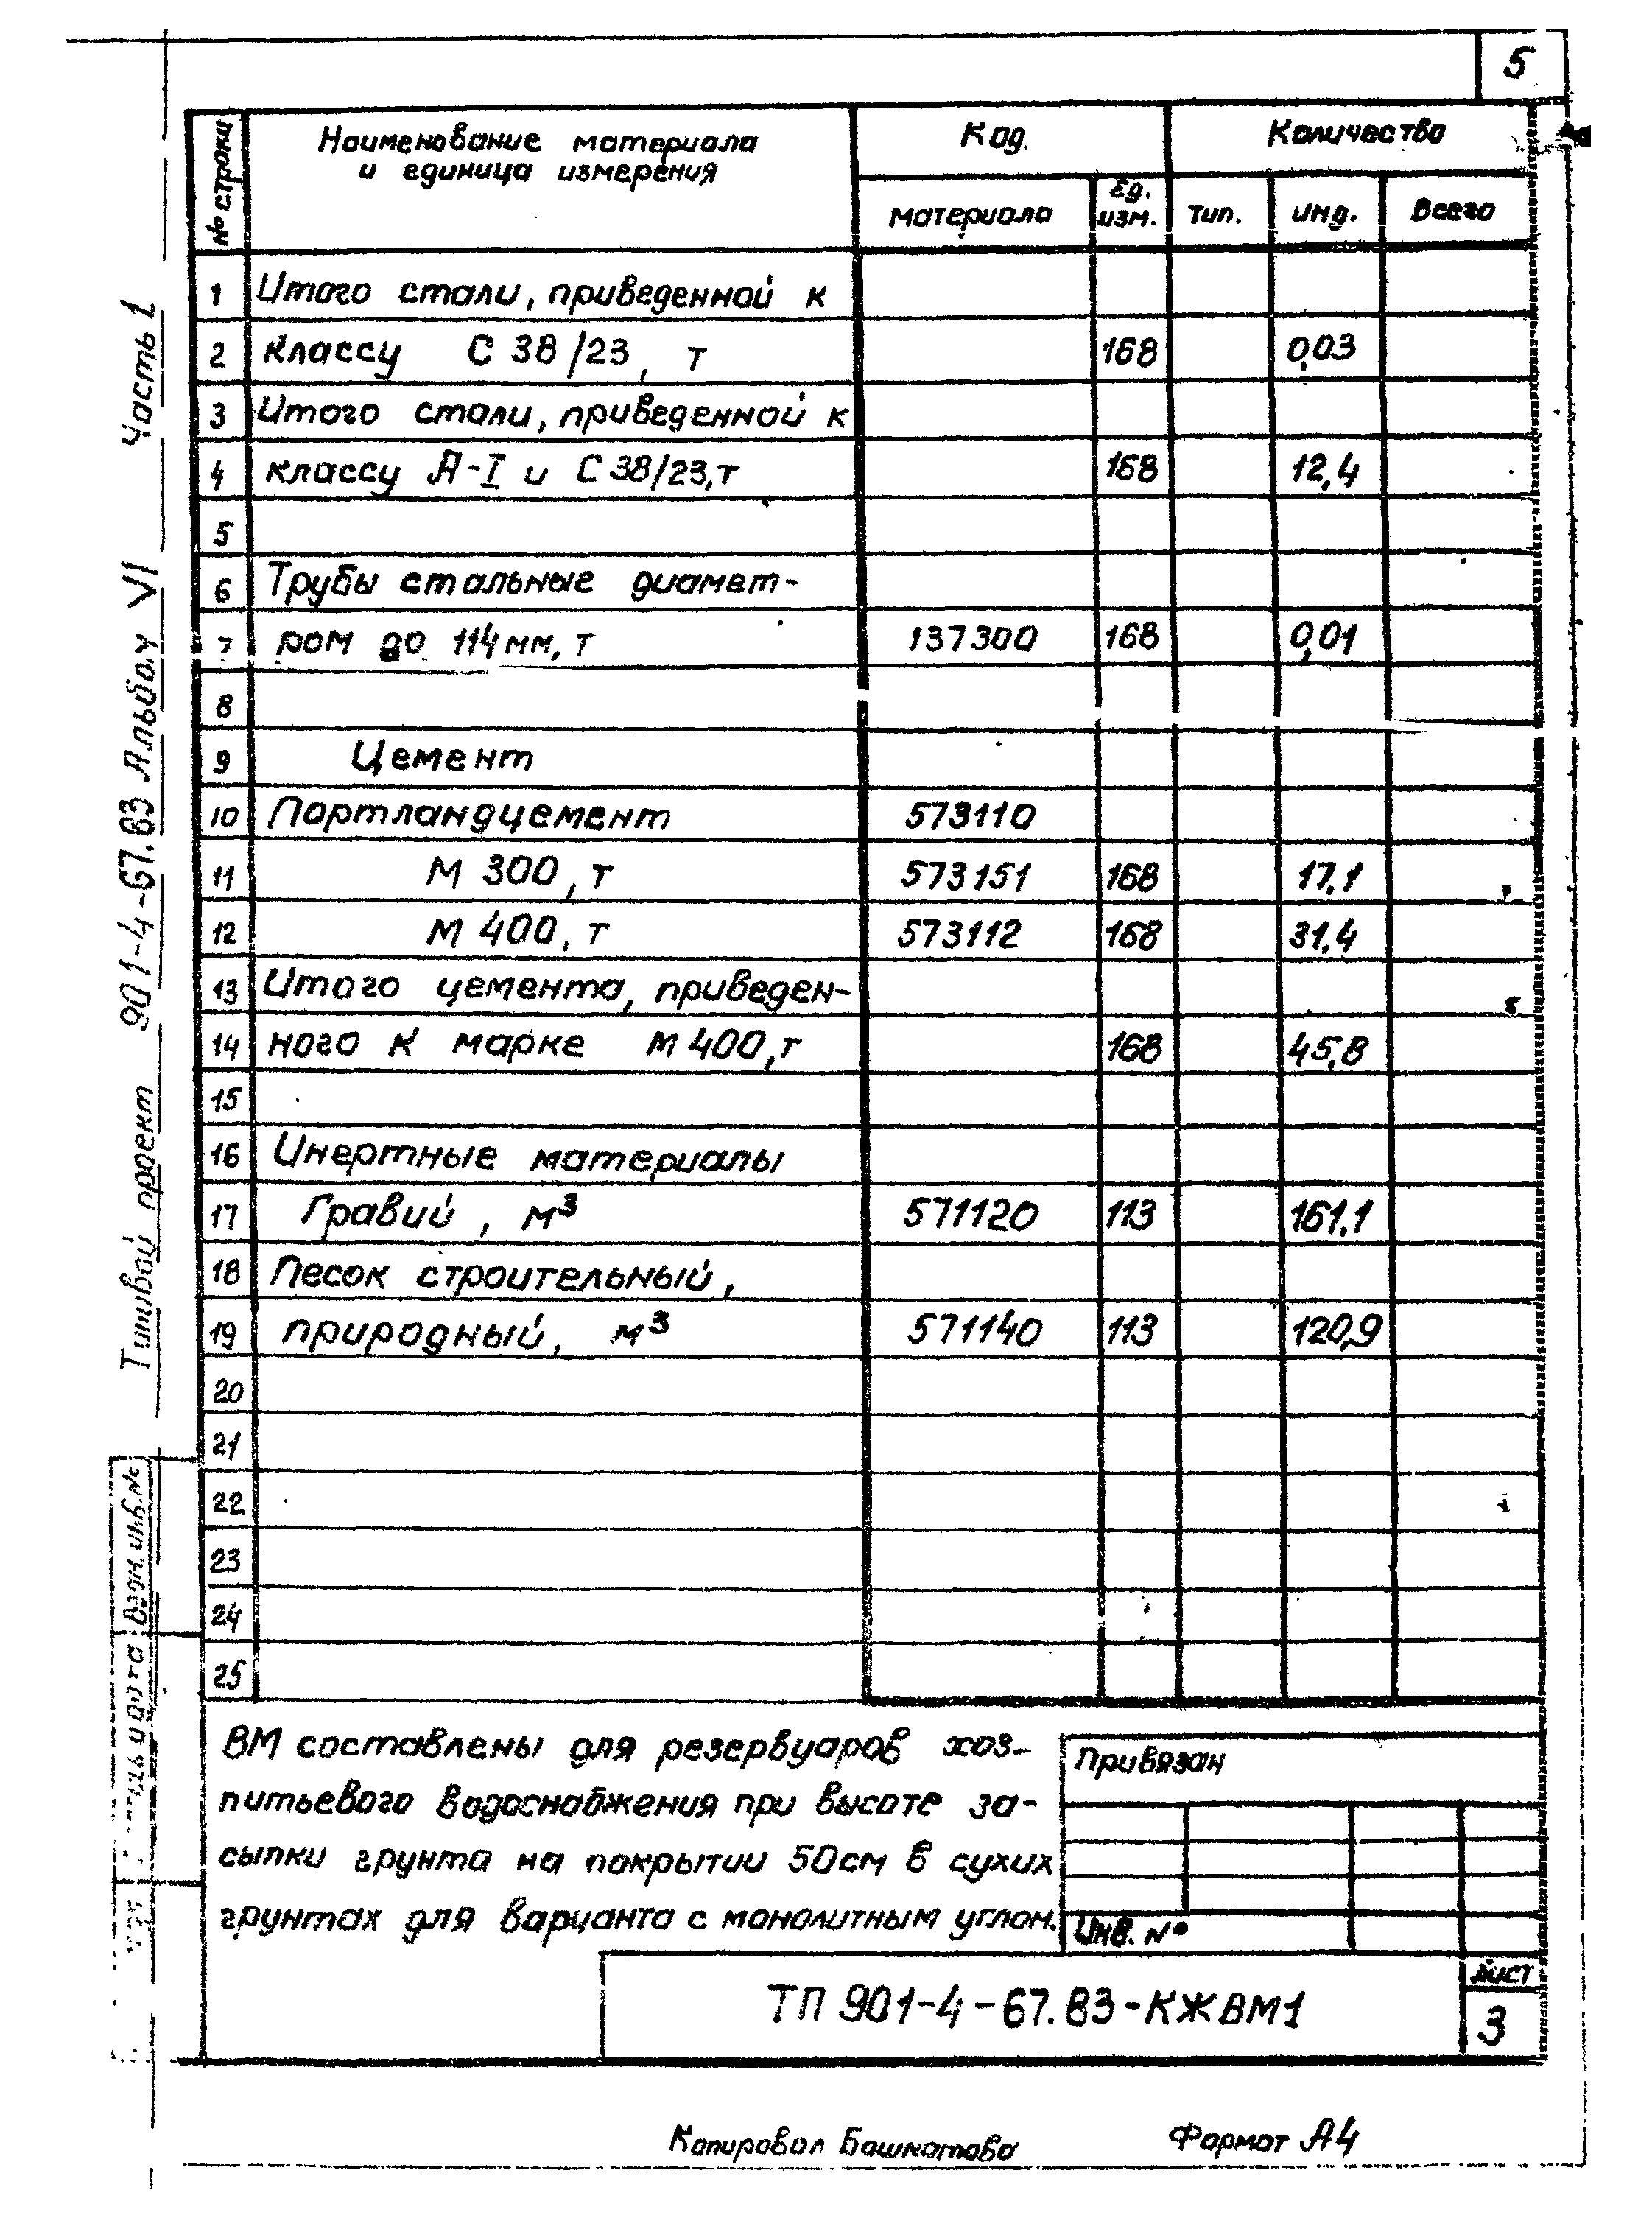 5
№ строки
Наименование материала
и единица измерения
Код
Количество
материала
Ед.
изм.
тип.
инд.
Всего
1 Итого стали, приведенной к
2 классу С 38/23, т 168 0,03
3 Итого стали, приведенной к
4 классу А-I и С 38/23, т 168 12,4
5
6 Трубы стальные диамет-
7 ром до 114 мм, т 137300 168 0,01
8
9 Цемент
10 Портландцемент 573110
11 М 300, т 573151 168 17,1
12 М 400, т 573112 168 31,4
13 Итого цемента, приведен-
14 ного к марке М 400, т 168 45,8
15
16 Инертные материалы
17 Гравий, м³ 571120 113 161,1
18 Песок строительный,
19 природный, м³ 571140 113 120,9
20
21
22
23
24
25
ВМ составлены для резервуаров хоз-
питьевого водоснабжения при высоте за-
сыпки грунта на покрытии 50см в сухих
грунтах для варианта с монолитным углом.
Привязан
Инв. №
ТП 901-4-67.83-КЖВМ1
Лист
3
Копировал Башматова
Формат А4
Типовой проект 901-4-67.83 Альбом VI Часть 1
Взам. инв. №
дата